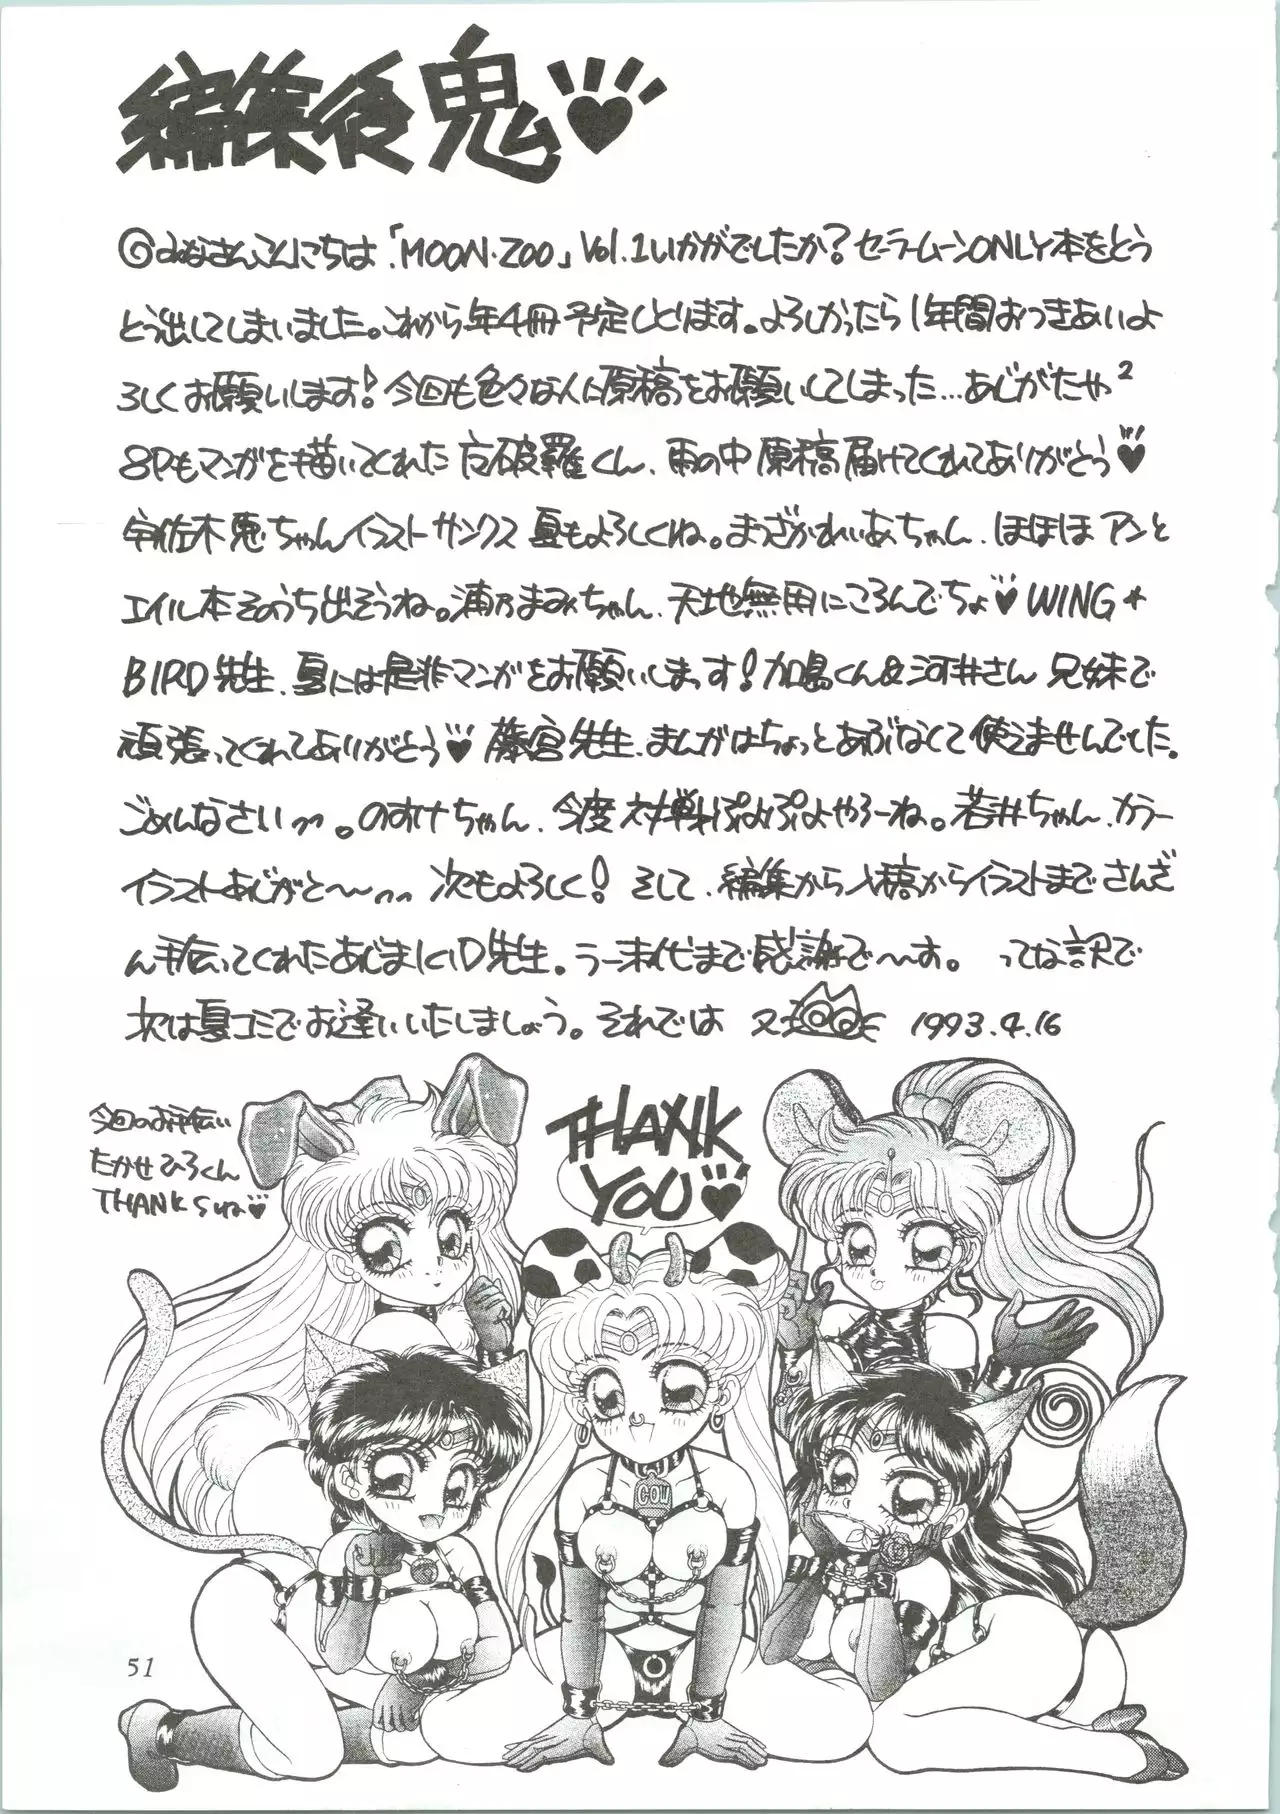 編集後鬼♥
◎みなさんこんにちは「MOON・ZOO」Vol.1いかがでしたか？セーラームーンONLY本をとう
とう出してしまいました。これから年4冊予定しとります。よろしかったら1年間おつきあいよ
ろしくお願いします！今回も色々な人に原稿をお願いしてしまった…あじがたや²
8Pもマンガを描いてくれた破羅くん、雨の中原稿届けてくれてありがとう♥
宇佐木恵ちゃんイラストサンクス夏もよろしくね。まつざかれいあちゃん、ほほほアンと
エイル本そのうち出そうね。浦乃まみちゃん、天地無用にころんでちょ♥WING★
BIRD先生、夏には是非マンガをお願いしまっす！加島くん&河井さん兄妹で
頑張ってくれてありがとう♥藤宮先生、まんがはちょっとあぶなくて使えませんでした。
ごめんなさい〜。のすけちゃん、今度対戦ぷよぷよやろーね。若井ちゃん、カラー
イラストあじがと〜〜次もよろしく！そして、編集から入稿からイラストまでさんざ
ん手伝ってくれたあじまKID先生。うー末代まで感謝で〜〜す。ってな訳で
次は夏コミでお逢いいたしましょう。それでは 1993.4.16
今回のお手伝い
たかせひろくん
THANKSね♥
THANK
YOU♥
COW
51